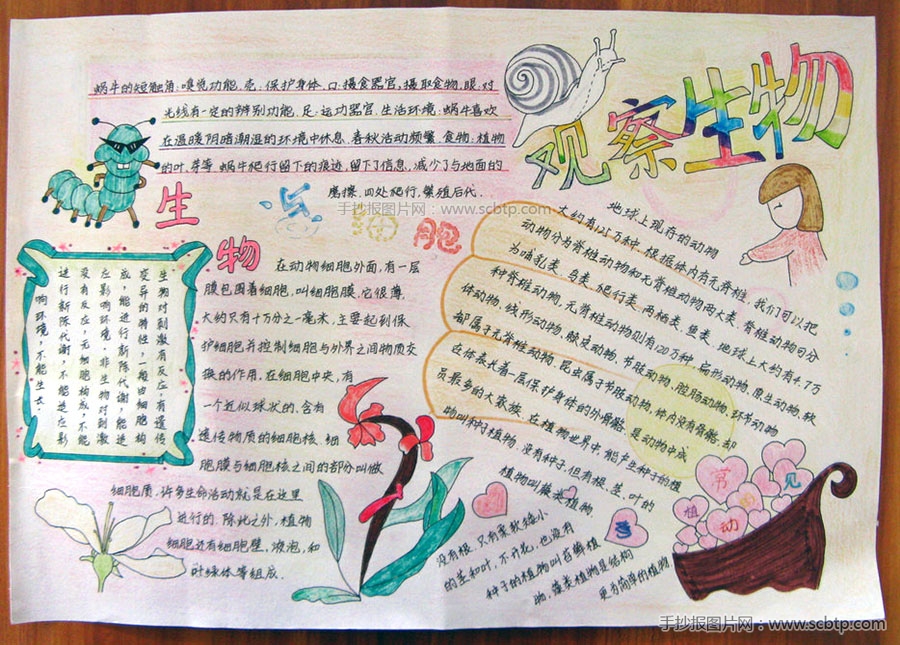 观察生物
蜗牛的短触角:嗅觉功能.壳:保护身体.口:摄食器官,摄取食物.眼:对
光线有一定的辨别功能.足:运动器官.生活环境:蜗牛喜欢
在温暖阴暗潮湿的环境中休息.春秋活动频繁.食物:植物
的叶.芽等.蜗牛爬行留下的痕迹,留下了信息,减少了与地面的
磨擦.四处爬行,繁殖后代.
手抄报图片网:www.scbtp.com
生
物
与
细
胞
生物对刺激有反应,有遗传
变异的特性,一般由细胞构
成,能进行新陈代谢,能适
应影响环境,非生物对刺激
没有反应,无细胞构成,不能
进行新陈代谢,不能适应影
响环境,不能生长.
在动物细胞外面,有一层
膜包围着细胞,叫细胞膜.它很薄,
大约只有十万分之一毫米,主要起到保
护细胞并控制细胞与外界之间物质交
换的作用,在细胞中央,有
一个近似球状的,含有
遗传物质的细胞核.细
胞膜与细胞核之间的部分叫做
细胞质,许多生命活动就是在这里
进行的.除此之外,植物
细胞还有细胞壁,液泡,和
叶绿体等组成.
地球上现存的动物
大约有125万种.根据体内有无脊椎,我们可以把
动物分为脊椎动物和无脊椎动物两大类.脊椎动物可分
为哺乳类、鸟类、爬行类、两栖类、鱼类.地球上大约有4.7万
种脊椎动物,无脊椎动物则有120万种,扁形动物,原生动物,软
体动物,线形动物,棘皮动物,节肢动物,腔肠动物,环节动物
都属于无脊椎动物.昆虫属于节肢动物,体内没有骨骼,却
在体表长着一层保护身体的外骨骼,是动物中成
员最多的大家族.在植物世界中,能产生种子的植
物叫种子植物.没有种子,但有根、茎、叶的
植物叫蕨类植物
没有根,只有柔软矮小
的茎和叶,不开花,也没有
种子的植物叫苔藓植
物,藻类植物是结构
更为简单的植物.
常
见
植
动
手抄报图片网:www.scbtp.com